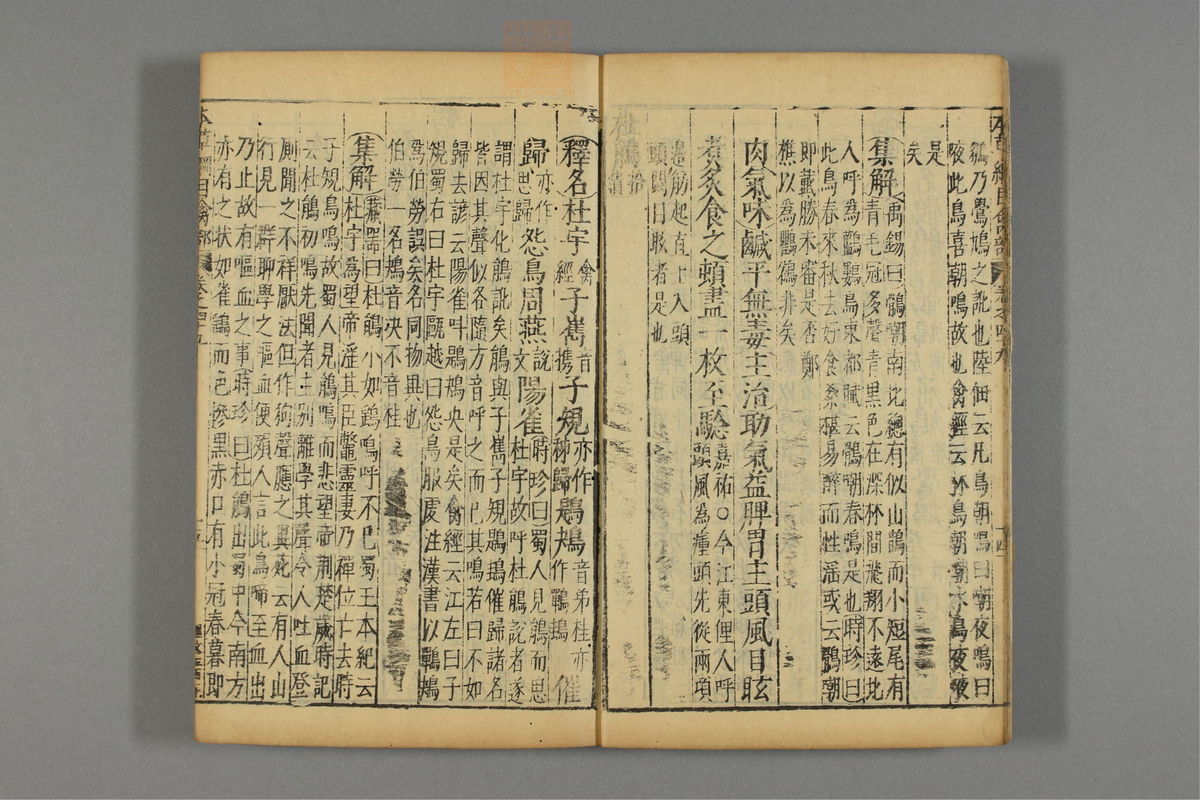 鵃乃鷽鳩之訛也陸佃云凡鳥朝鳴曰嘲夜鳴曰
㖡此鳥喜朝鳴故也禽經云林鳥朝嘲水鳥夜㖡
是
矣
集解禹錫曰鶻嘲南北總有似山鵲而小短尾有
青毛冠多聲青黑色在深林間飛翔不遠北
人呼為鸜鵒鳥東都賦云鶻嘲春鳴是也時珍曰
此鳥春來秋去好食桑椹易醉而性淫或云鶻嘲
即戴勝未審是否鄭
樵以為鸜鵒非矣
肉氣味鹹平無毒主治助氣益脾胃主頭風目眩
煮炙食之頓盡一枚至驗嘉祐○今江東俚人呼
頭風為瘇頭先從兩項
邊筋起直上入頭
頭悶目眩者是也
杜鵑拾遺
釋名杜宇禽經子巂音攜子規亦作秭歸鶗鴂音弟桂亦作鷤䳏催
歸亦作思歸怨鳥周燕說文陽雀時珍曰蜀人見鵑而思
杜宇故呼杜鵑說者遂
謂杜宇化鵑訛矣鵑與子巂子規鶗鴂催歸諸名
皆因其聲似各隨方音呼之而已其鳴若曰不如
歸去諺云陽雀叫鶗鴂央是矣禽經云江左曰子
規蜀右曰杜宇甌越曰怨鳥服虔注漢書以鷤䳏
為伯勞誤矣名同物異也
伯勞一名鴂音決不音桂
集解藏器曰杜鵑小如鷂鳴呼不已蜀王本紀云
杜宇為望帝淫其臣鼈靈妻乃禪位亡去時
子規鳥鳴故蜀人見鵑鳴而悲望帝荆楚歲時記
云杜鵑初鳴先聞者主别離學其聲令人吐血登
厠聞之不祥厭法但作狗聲應之異苑云有人山
行見一羣聊學之嘔血便殞人言此鳥啼至血出
乃止故有嘔血之事時珍曰杜鵑出蜀中今南方
亦有之狀如雀鷂而色慘黑赤口有小冠春暮即